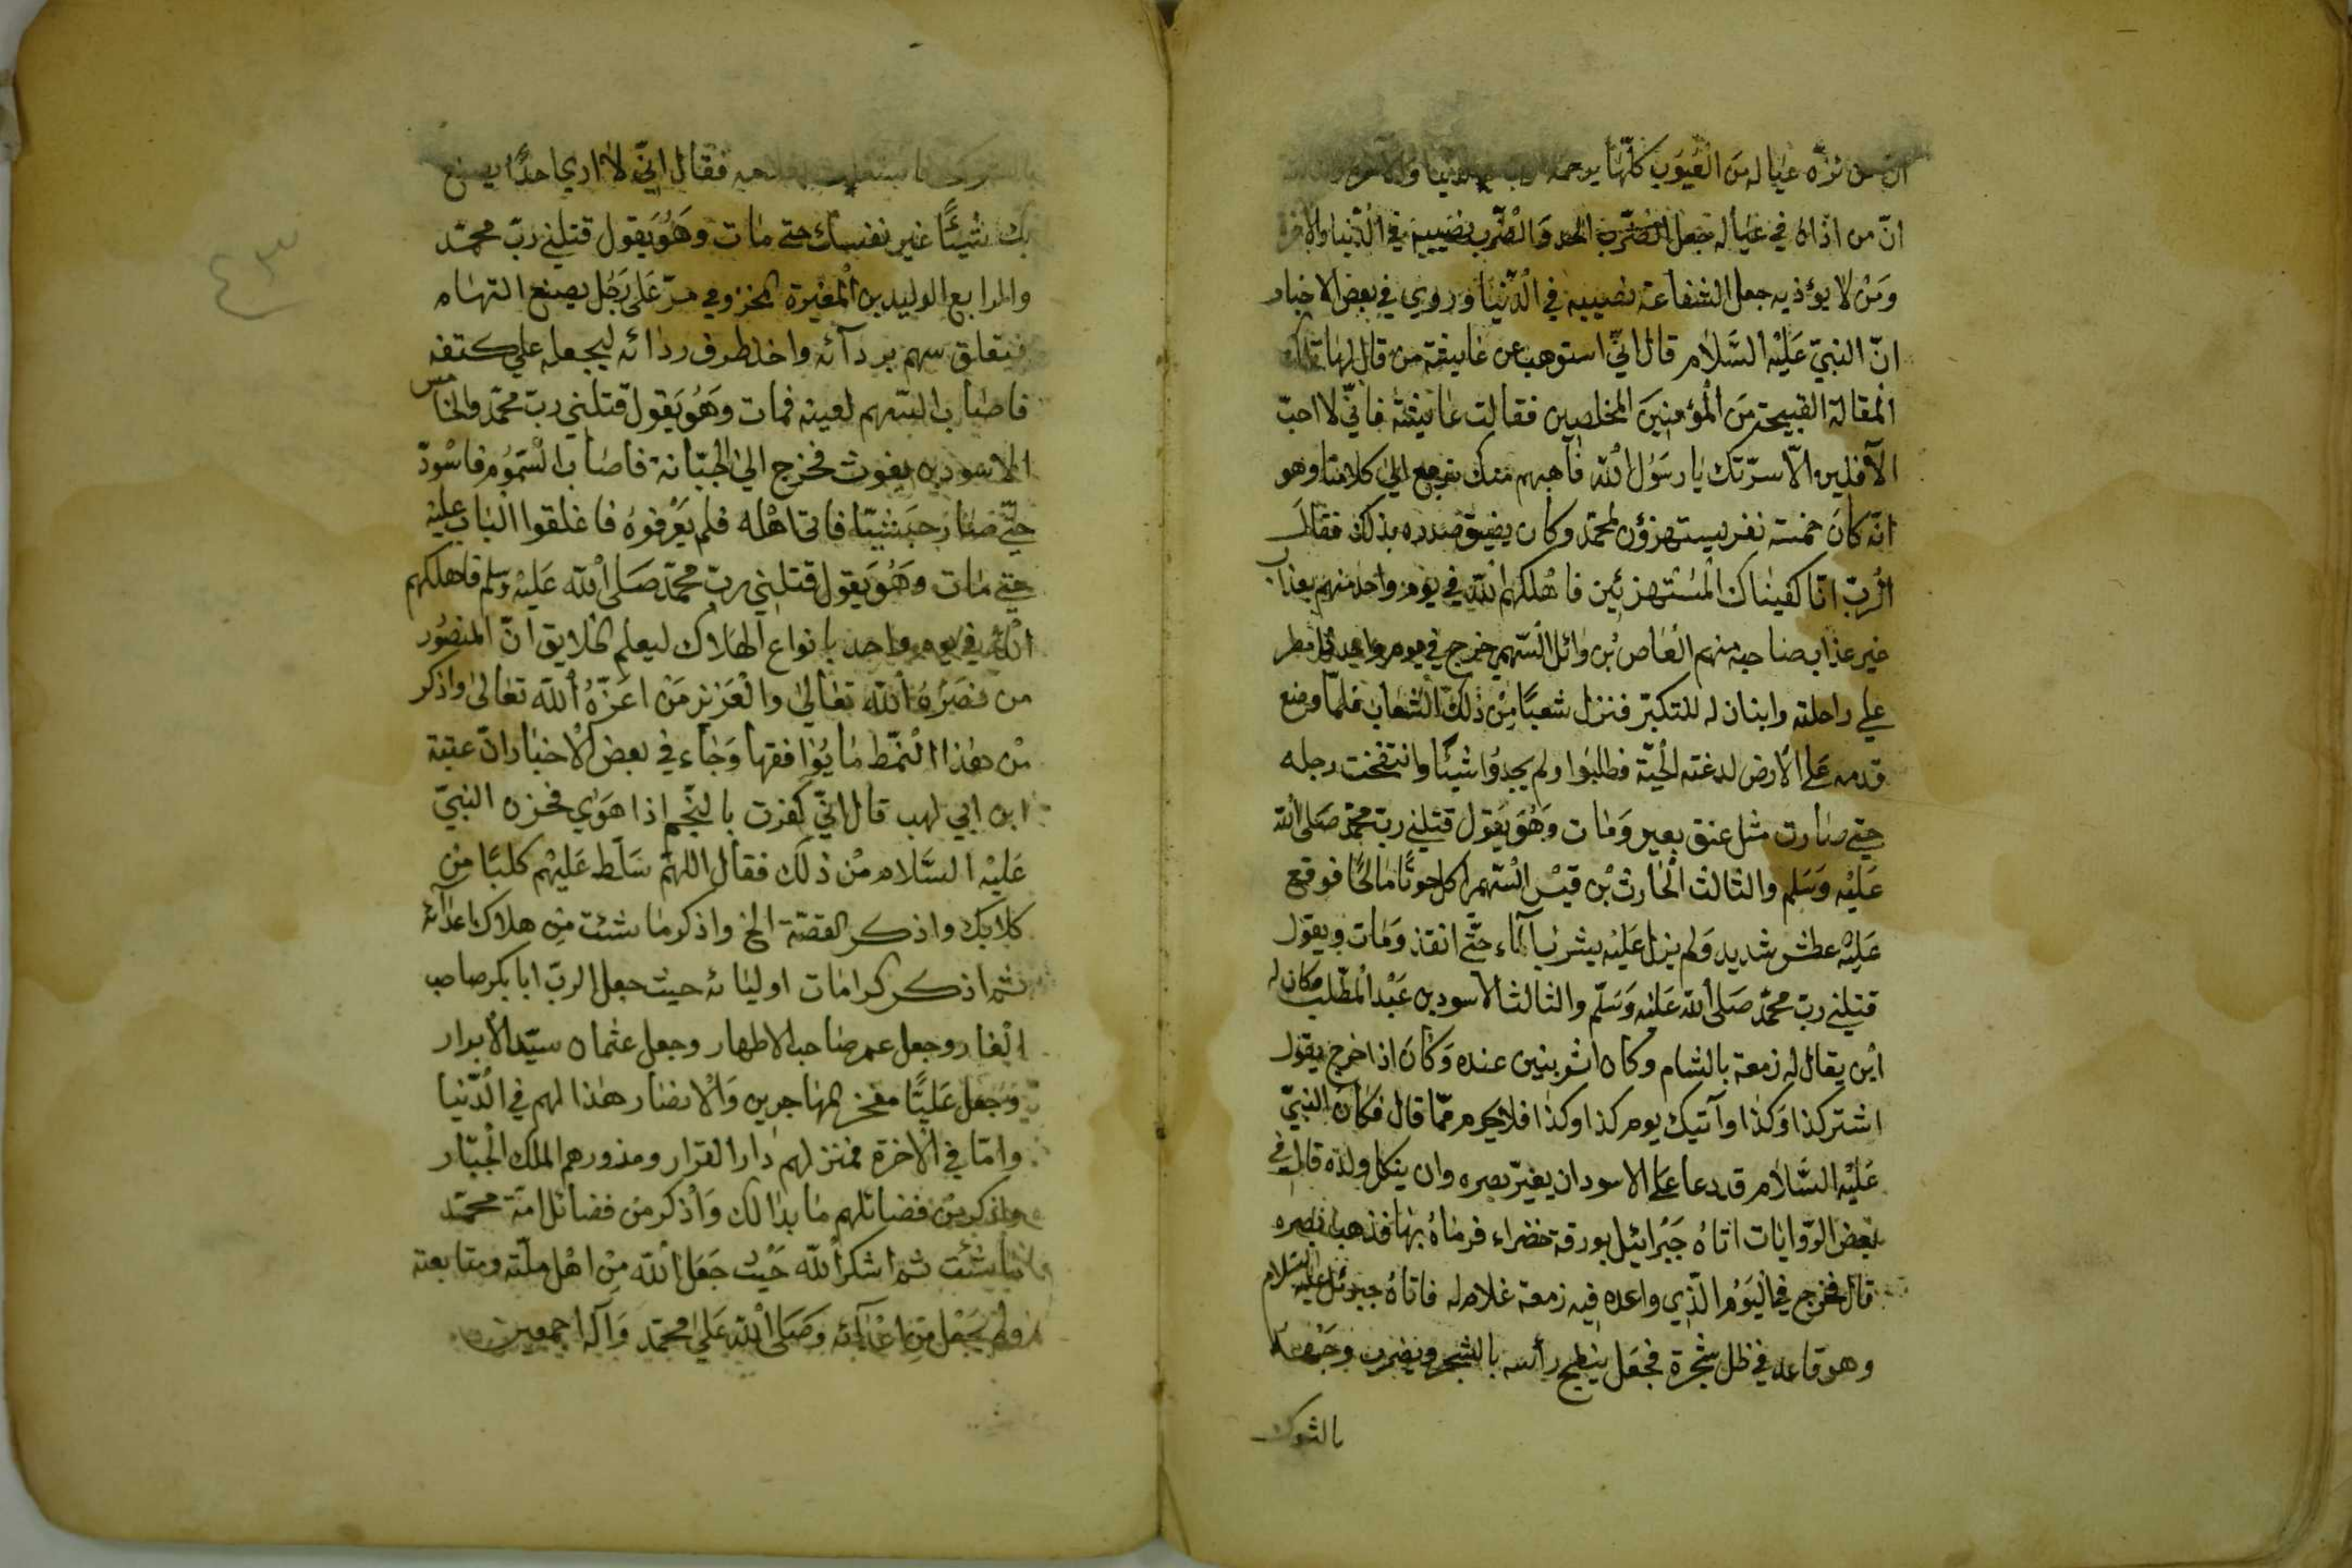 ان من نزّه عياله من العيوب كلّها يرحمه
انّ من اذاه في عياله جعل الضّرب الحد والضّرب نصيبهم في الدّنيا والاخرة
ومن لا يؤذيه جعل الشفاعة نصيبه في الدّنيا وروي في بعض الاخبار
انّ النبيّ عَلَيْه السَّلام قال انّي استوهب عن عايشة من قال لها تلك
المقالة القبيحة من المؤمنين المخلصين فقالت عايشة فانّي لا احبّ
الآفلين الّا سرّتك يا رسول الله فآهبهم منك نرجع الي كلامنا وهو
انّه كان خمسة نفر يستهزؤن لمحمّد وكان يضيق صدره بذلك فقال
الربّ انّا كفيناك المستهزئين فاهلكهم الله في يوم واحد منهم بعذاب
غير عذاب صاحبه منهم العاص بن وائل السّهمي خرج في يوم واحد مطر
علي راحلته وابنان له للتكبّر فنزل شعبًا من ذلك الشعاب فلمّا وضع
قدمه على الارض لدغته الحيّة فطلبوا ولم يجدوا شيئًا وانتفخت رجله
حتي صارت مثل عنق بعير ومات وهو يقول قتلني ربّ محمّد صلى الله
عليه وسلم والثالث الحارث بن قيس السّهمي اكل حوتًا مالحًا فوقع
عليه عطش شديد ولم يزل عليه يشرب الماء حتّى انقذ ومات ويقول
قتلني ربّ محمّد صلى الله عليه وسلّم والثالث الاسود بن عبد المطّلب وكان له
ابن يقال له زمعة بالشام وكان اثر بنين عنده وكان اذا خرج يقول
اشتر كذا وكذا وآتيك يوم كذا وكذا فلا يحرم ممّا قال فكان النبيّ
عليه السَّلام قد دعا على الاسود ان يغيّر بصره وان يثكل ولده قال في
بعض الرّوايات اتاه جبرائيل بورقة خضراء فرماه بها فذهب بصره
قال فخرج في اليوم الّذي واعده فيه زمعة غلام له فاتاه جبرئل عليه السلام
وهو قاعد في ظل شجرة فجعل ينطح رأسه بالشجر ويضرب وجهه
بالشوك
فقال انّي لا اري احدًا يصنع
بك شيئًا غير نفسك حتي مات وهو يقول قتلني ربّ محمّد
والرابع الوليد بن المغيرة المخزومي مرّ على رجل يصنع السّهام
فيتعلق سهم بردآئه واخذ طرف ردائه ليجعله علي كتفه
فاصاب السّهم لعينه فمات وهو يقول قتلني ربّ محمّد والخامس
الاسود بن يغوث فخرج الى الجبّانة فاصاب السّموم فاسودّ
حتّي صار حبشيّا فاتى اهله فلم يعرفوه فاغلقوا الباب عليه
حتي مات وهو يقول قتلني ربّ محمّد صلى الله عليه وسلم فاهلكهم
الله في يوم واحد بانواع الهلاك ليعلم الخلايق انّ المنصور
من نصره الله تعالى والعزيز من اعزّه الله تعالى واذكر
من هذا النّمط ما يوافقها وجاء في بعض الاخبار انّ عتبة
ابن ابي لهب قال انّي كفرت بالنّجم اذا هوي فحزن النبيّ
عليه السَّلام من ذلك فقال اللهمّ سلّط عليهم كلبًا من
كلابك واذكر القصّة الخ واذكر ما شئت من هلاك اعدآئه
ثم اذكر كرامات اوليائه حيث جعل الربّ ابا بكر صاحب
الغار وجعل عمر صاحب الاطهار وجعل عثمان سيّد الابرار
وجعل عليًّا مفخر المهاجرين والانصار هذا لهم في الدّنيا
وامّا في الاخرة فمنزلهم دار القرار ومزورهم الملك الجبّار
واذكر من فضائلهم ما بدا لك واذكر من فضائل امّة محمّد
ما شئت ثم اشكر الله حيث جعل الله من اهل ملّته ومتابعته
ولم يجعل من اعدآئه وصلى الله على محمّد وآله اجمعين
٤٣